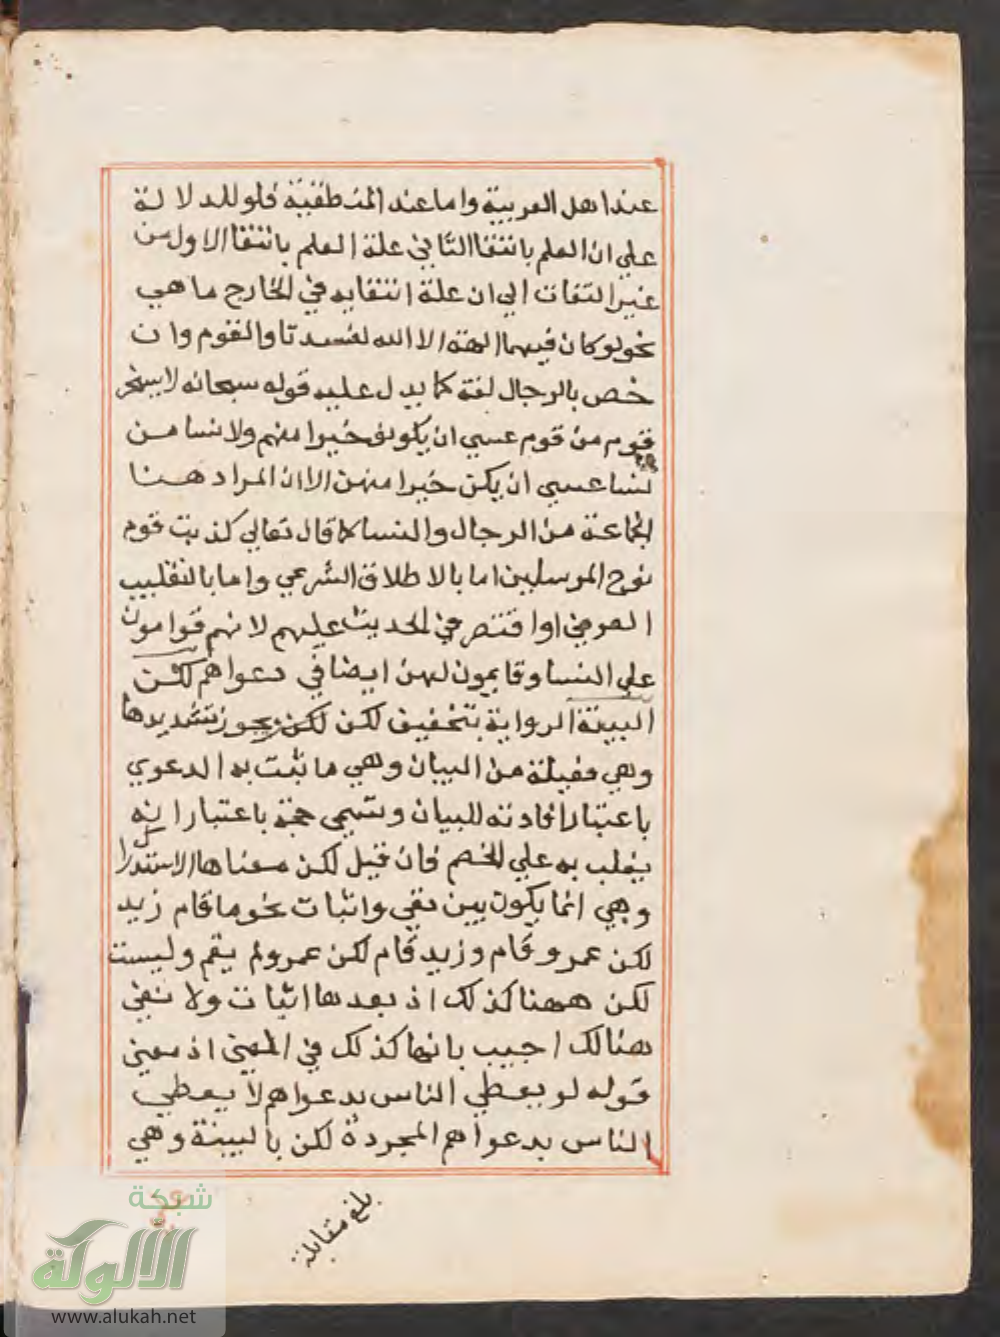 عند اهل العربية واما عند المنطقية فلو للدلالة
علي ان العلم بانتفا الثاني علة العلم بانتفا الاول من
غير التفات الي ان علة انتفايه في الخارج ما هي
نحو لو كان فيهما الهة الا الله لفسدتا والقوم وان
خص بالرجال لغة كما يدل عليه قوله سبحانه لا يسخر
قوم من قوم عسي ان يكونوا خيرا منهم ولا نسا من
نسا عسي ان يكن خيرا منهن الا ان المراد هنا
الجماعة من الرجال والنسا كما قال تعالي كذبت قوم
نوح المرسلين اما بالاطلاق الشرعي واما بالتغليب
العرفي او اقتصر في الحديث عليهم لانهم قوامون
علي النسا وقايمون لهن ايضا في دعواهم لكن
البينة الرواية بتخفيف لكن لكن يجوز تشديدها
وهي فعيلة من البيان وهي ما ثبت به الدعوي
باعتبار افادته للبيان وتسمي حجة باعتبار انه
يغلب به علي الخصم فان قيل لكن معناها الاستدراك
وهي انما يكون بين نفي واثبات نحو ما قام زيد
لكن عمرو قام وزيد قام لكن عمرو لم يقم وليست
لكن ههنا كذلك اذ بعدها اثبات ولا نفي
هنالك اجيب بانها كذلك في المعني اذ معني
قوله لو يعطي الناس بدعواهم لا يعطي
الناس بدعواهم المجردة لكن بالبينة وهي
بلغ مقابلة
شبكة
الألوكة
www.alukah.net